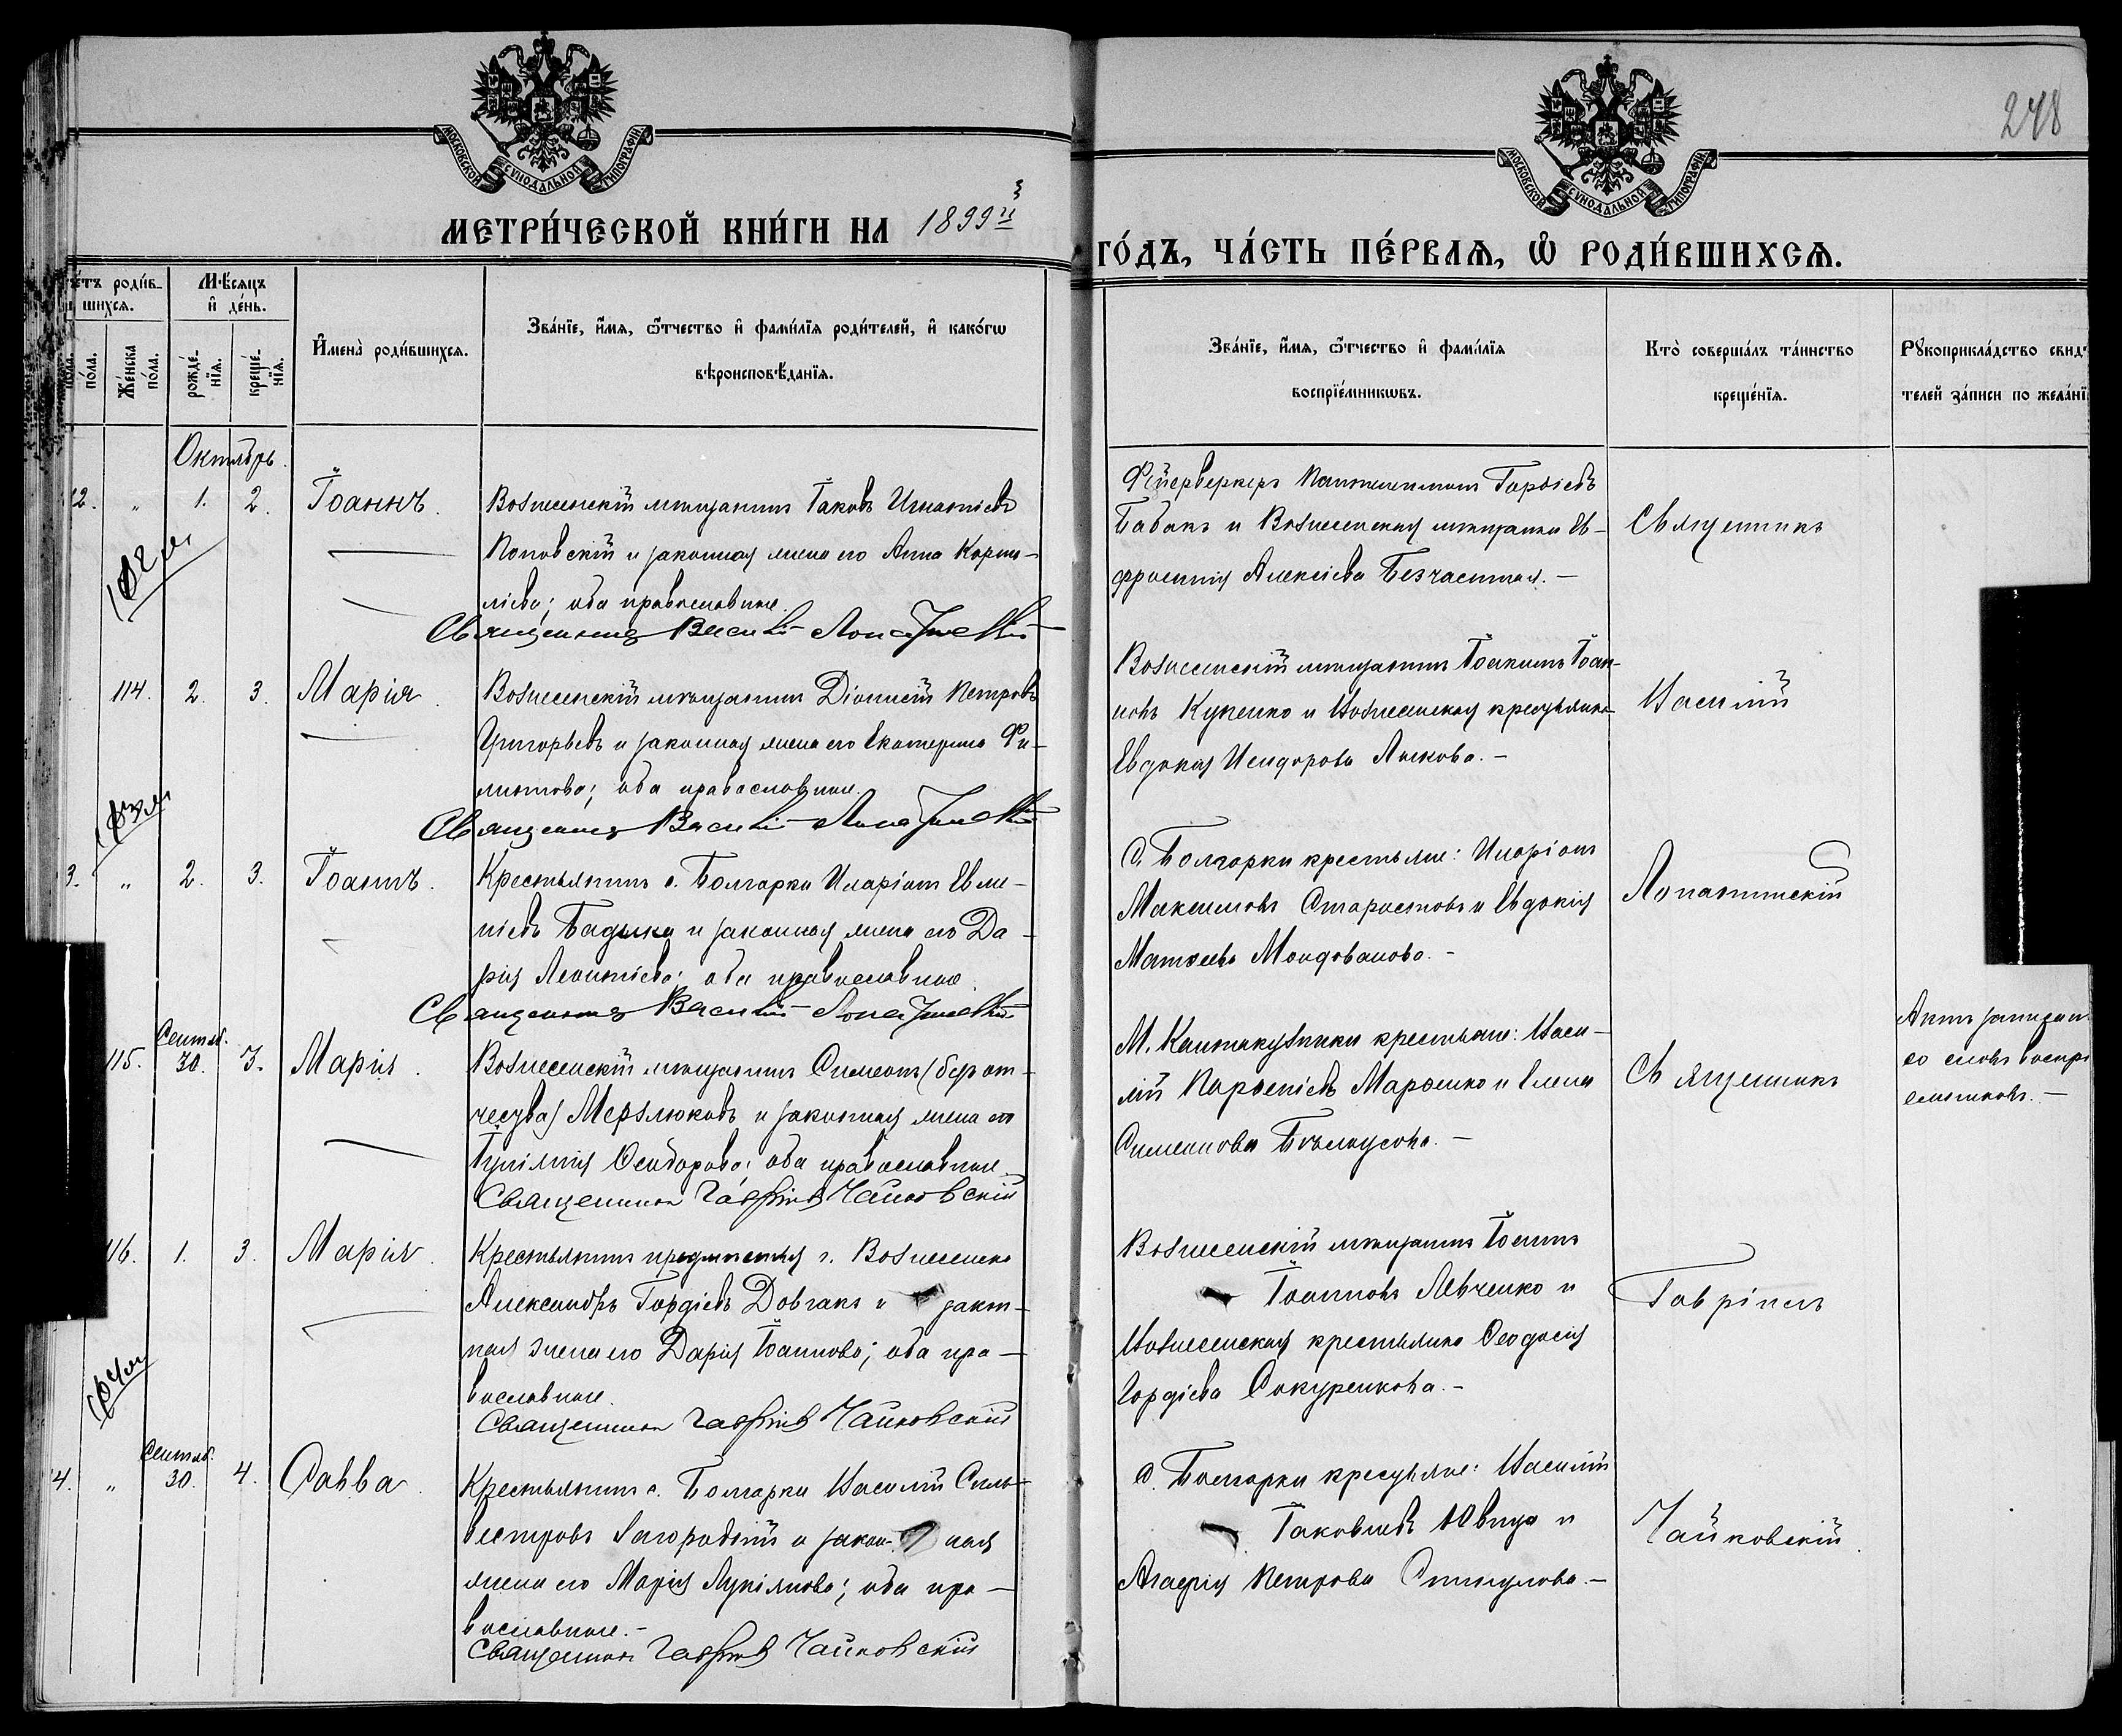 248
МОСКОВСКОЙ СѴНОДАЛЬНОЙ ТИПОГРАФІИ
МОСКОВСКОЙ СѴНОДАЛЬНОЙ ТИПОГРАФІИ
МЕТРИ́ЧЕСКОЙ КНИ́ГИ НА 1899й
ГО́ДЪ, ЧА́СТЬ ПЕ́РВАЯ, Ѡ РОДИ́ВШИХСЯ.
роди́в-
шихся.
Мѣсяцъ
и де́нь.
пола. по́ла.
Же́нска по́ла.
рожде́-нїя.
креще́-нїя.
Имена̀ роди́вшихся.
Зва́нїе, и́мя, ѻ҆́тчество и фами́лїя роди́телей, и како́гѡ
вѣроисповѣ́данїя.
Зва́нїе, и́мя, ѻ҆́тчество и фами́лїя
воспрїе́мникѡвъ.
Кто̀ соверша́лъ та́инство
креще́нїя.
Рꙋкоприкла́дство свидѣ
телей за́писи по жела́нї
Октябрь.
12. „ 1. 2. Іоаннъ.
Вознесенскій мѣщанинъ Іаковъ Игнатіевъ
Поповскій и законная жена его Анна Корни-
ліева; оба православные.
Священникъ Василій Лопатинскій
Фейерверкеръ Гордіевъ
Бабакъ и Вознесенская мѣщанка Ев-
фросинія Алексіева Безчастная. –
Священникъ
114. 2. 3. Марія.
Вознесенскій мѣщанинъ Діонисій Петровъ
Григорьевъ и законная жена его Екатерина Фи-
липпова; оба православные.
Священникъ Василій Лопатинскій
Вознесенскій мѣщанинъ Іоакимъ Іоан-
новъ Куценко и Вознесенская крестьянка
Евдокія Исидорова Лыкова. –
Василій
3. „ 2. 3. Іоаннъ.
Крестьянинъ с. Болгарки Иларіонъ Евме-
ніевъ Бадыка и законная жена его Да-
рія Леонтіева; оба православные.
Священникъ Василій Лопатинскій
С. Болгарки крестьяне: Иларіонъ
Максимовъ и Евдокія
Матѳеева Молдованова. –
Лопатинскій
Сентяб.
115. 30. 3. Марія.
Вознесенскій мѣщанинъ Симеонъ (безъ от-
чества) Мерзлюковъ и законная жена его
Ѳеодорова; оба православные.
Священникъ Гавріилъ Чайковскій
М. Кантакузинки крестьяне: Васи-
лій Марченко и Елена
Симеонова Бѣлоусова. –
Священникъ
Актъ записан
со словъ воспрі
емниковъ. –
116. 1. 3. Марія.
Крестьянинъ предмѣстья г. Вознесенска
Александръ Гордіевъ Довгань и закон-
ная жена его Дарія Іоаннова; оба пра-
вославные.
Священникъ Гавріилъ Чайковскій
Вознесенскій мѣщанинъ Іоаннъ
Іоанновъ Левченко и
Вознесенская крестьянка Ѳеодосія
Гордіева Сокуренкова. –
Гавріилъ
Сентяб.
4. „ 30. 4. Савва.
Крестьянинъ с. Болгарки Василій Силь-
вестровъ Загородній и закон- ная
жена его Марія Лукіянова; оба пра-
вославные. –
Священникъ Гавріилъ Чайковскій
С. Болгарки крестьяне: Василій
Іаковлевъ и
Агафія Петрова
Чайковскій.